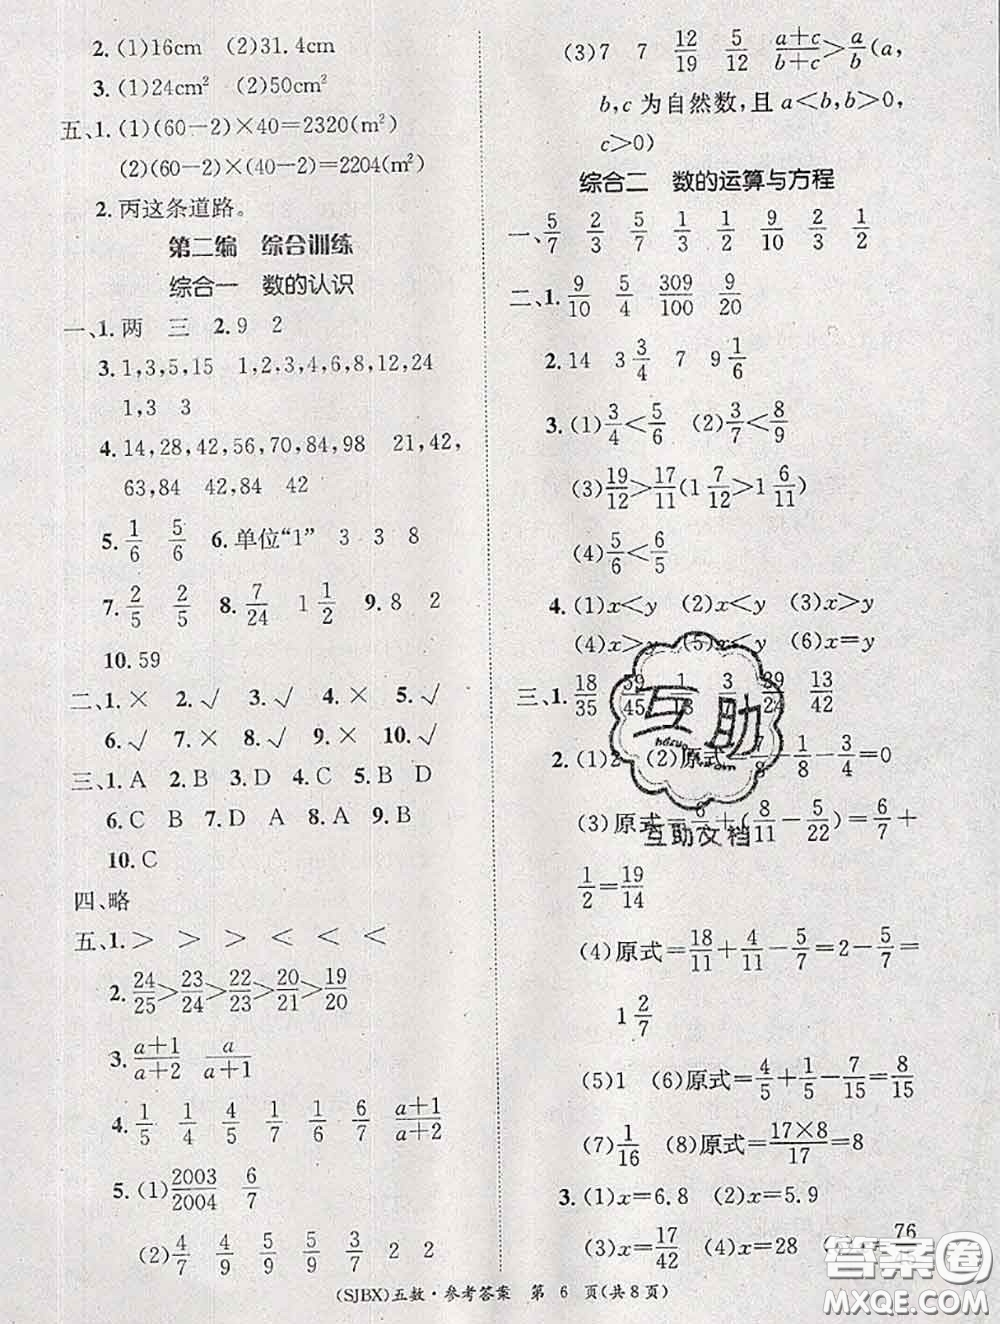 2. (1)16cm (2)31.4cm
3. (1)24cm² (2)50cm²
五、1. (1)(60－2)×40＝2320(m²)
(2)(60－2)×(40－2)＝2204(m²)
2. 丙这条道路。
第二编 综合训练
综合一 数的认识
一、1. 两 三 2. 9 2
3. 1,3,5,15 1,2,3,4,6,8,12,24
1,3 3
4. 14,28,42,56,70,84,98 21,42,
63,84 42,84 42
5. 1/6 5/6 6. 单位“1” 3 3 8
7. 2/5 2/5 8. 7/24 1 1/2 9. 8 2
10. 59
二、1. × 2. √ 3. √ 4. × 5. √
6. √ 7. × 8. √ 9. × 10. √
三、1. A 2. B D 3. D 4. C 5. B D
6. C B 7. D A 8. A 9. B
10. C
四、略
五、1. ＞ ＞ ＞ ＜ ＜ ＜
2. 24/25＞23/24＞22/23＞20/21＞19/20
3. a+1/a+2 a/a+1
4. 1/5 1/4 4/5 1/7 1/6 6/7 a+1/a+2
5. (1) 2003/2004 6/7
(2) 4/7 4/9 5/9 5/9 3/7 2 2
(3)7 7 12/19 5/12 a+c/b+c＞a/b(a,
b,c 为自然数,且 a＜b,b＞0,
c＞0)
综合二 数的运算与方程
一、5/7 2/3 5/7 1/3 1/2 9/10 2/3 1/2
二、1. 9/10 5/4 309/100 9/20
2. 14 3 3/4 7 9 1/6
3. (1) 3/4＜5/6 (2) 3/7＜8/9
(3) 19/12＞17/11(1 7/12＞1 6/11)
(4) 5/6＜6/5
4. (1)x＜y (2)x＜y (3)x＞y
(4)x＞y (5)x＜y (6)x＝y
三、1. 18/35 59/45 3 24 13/42
2. (1)2 (2)原式＝7/8－1/8－3/4＝0
(3)原式＝6/7＋(8/11－5/22)＝6/7＋
1/2＝19/14
(4)原式＝18/11＋4/11－5/7＝2－5/7＝
1 2/7
(5)1 (6)原式＝4/5＋1/5－7/15＝8/15
(7) 1/16 (8)原式＝17×8/17＝8
3. (1)x＝6.8 (2)x＝5.9
(3)x＝17/42 (4)x＝28 76
(SJBX)五数·参考答案 第 6 页(共8页)
互助
互助文档
答案圈
MXQE.COM